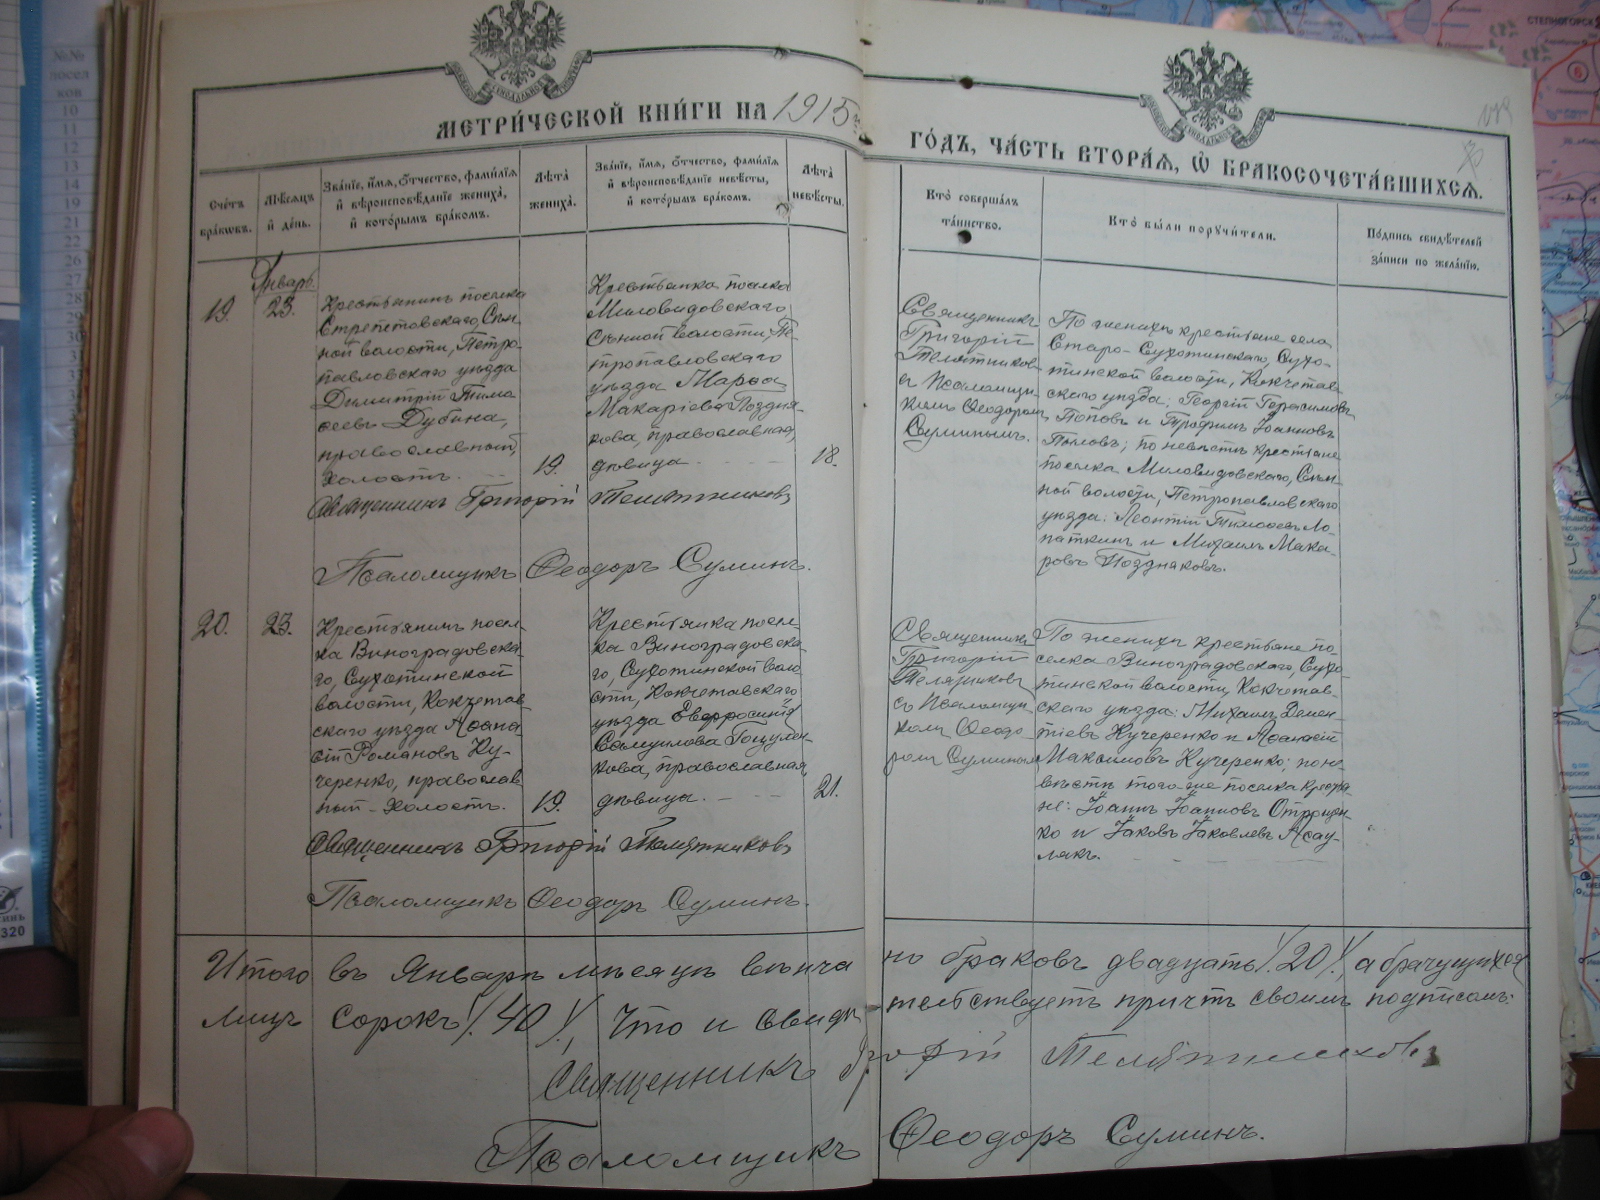 МЕТРИ́ЧЕСКОЙ КНИ́ГИ НА 1915 г.
ГО́ДЪ, ЧА́СТЬ ВТОРА́Я, Ѡ БРАКОСОЧЕТА́ВШИХСЯ.
Сче́тъ бра́кѡвъ.
Мѣ́сяцъ и҆ де́нь.
Зва́нїе, и҆́мя, ѻ҆́тчество, фами́лїя
и҆ вѣроисповѣ́данїе жениха̀,
и҆ кото́рымъ бра́комъ.
Лѣта̀ жениха̀.
Зва́нїе, и҆́мя, ѻ҆́тчество, фами́лїя
и҆ вѣроисповѣ́данїе невѣ́сты,
и҆ кото́рымъ бра́комъ.
Лѣта̀ невѣ́сты.
Кто̀ соверша́лъ
та́инство.
Кто̀ бы́ли порꙋчи́тели.
По́дпись свидѣ́телей
за́писи по жела́нїю.
Январь.
19.
23.
Крестьянинъ поселка
Стрепетовскаго, Сѣн-
ной волости, Петро-
павловскаго уѣзда
Димитрій Тимо-
ѳеевъ Дубина,
православный,
холостъ.
19.
Крестьянка поселка
Миловидовскаго,
Сѣнной волости, Пе-
тропавловскаго
уѣзда Марѳа
Макаріева Поздня-
кова, православная,
дѣвица.
18.
Священникъ
Григорій
Телятниковъ
съ Псаломщи-
комъ Ѳеодоромъ
Суминымъ.
По женихѣ крестьяне села
Старо-Сухотинскаго, Сухо-
тинской волости, Кокчетав-
скаго уѣзда: Георгій Герасимовъ
Поповъ и Трофимъ Іоанновъ
Поповъ; по невѣстѣ крестьяне
поселка Миловидовскаго, Сѣн-
ной волости, Петропавловскаго
уѣзда: Леонтій Тимоѳеевъ Ло-
паткинъ и Михаилъ Мака-
ровъ Поздняковъ.
Священникъ Григорій Телятниковъ
Псаломщикъ Ѳеодоръ Суминъ.
20.
23.
Крестьянинъ посел-
ка Виноградовска-
го, Сухотинской
волости, Кокчетав-
скаго уѣзда Аѳана-
сій Романовъ Ку-
черенко, православ-
ный - холостъ.
19.
Крестьянка посел-
ка Виноградовска-
го, Сухотинской воло-
сти, Кокчетавскаго
уѣзда Евфросинія
Самуилова Гоцулен-
кова, православная,
дѣвица.
21.
Священникъ
Григорій
Телятниковъ
съ Псаломщи-
комъ Ѳеодо-
ромъ Суминымъ
По женихѣ крестьяне по-
селка Виноградовскаго, Сухо-
тинской волости, Кокчетав-
скаго уѣзда: Михаилъ Демен-
тіевъ Кучеренко и Аѳанасій
Максимовъ Кучеренко; по не-
вѣстѣ того-же поселка крестья-
не: Іоаннъ Іоанновъ Отрощен-
ко и Іаковъ Іаковлевъ Асау-
лякъ.
Священникъ Григорій Телятниковъ
Псаломщикъ Ѳеодоръ Суминъ.
Итого въ Январѣ мѣсяцѣ вѣнча но браковъ двадцать /.20./, а брачущихся
лицъ сорокъ /.40./, что и свидѣ тельствуетъ причтъ своимъ подписомъ:
Священникъ Григорій Телятниковъ
Псаломщикъ Ѳеодоръ Суминъ.